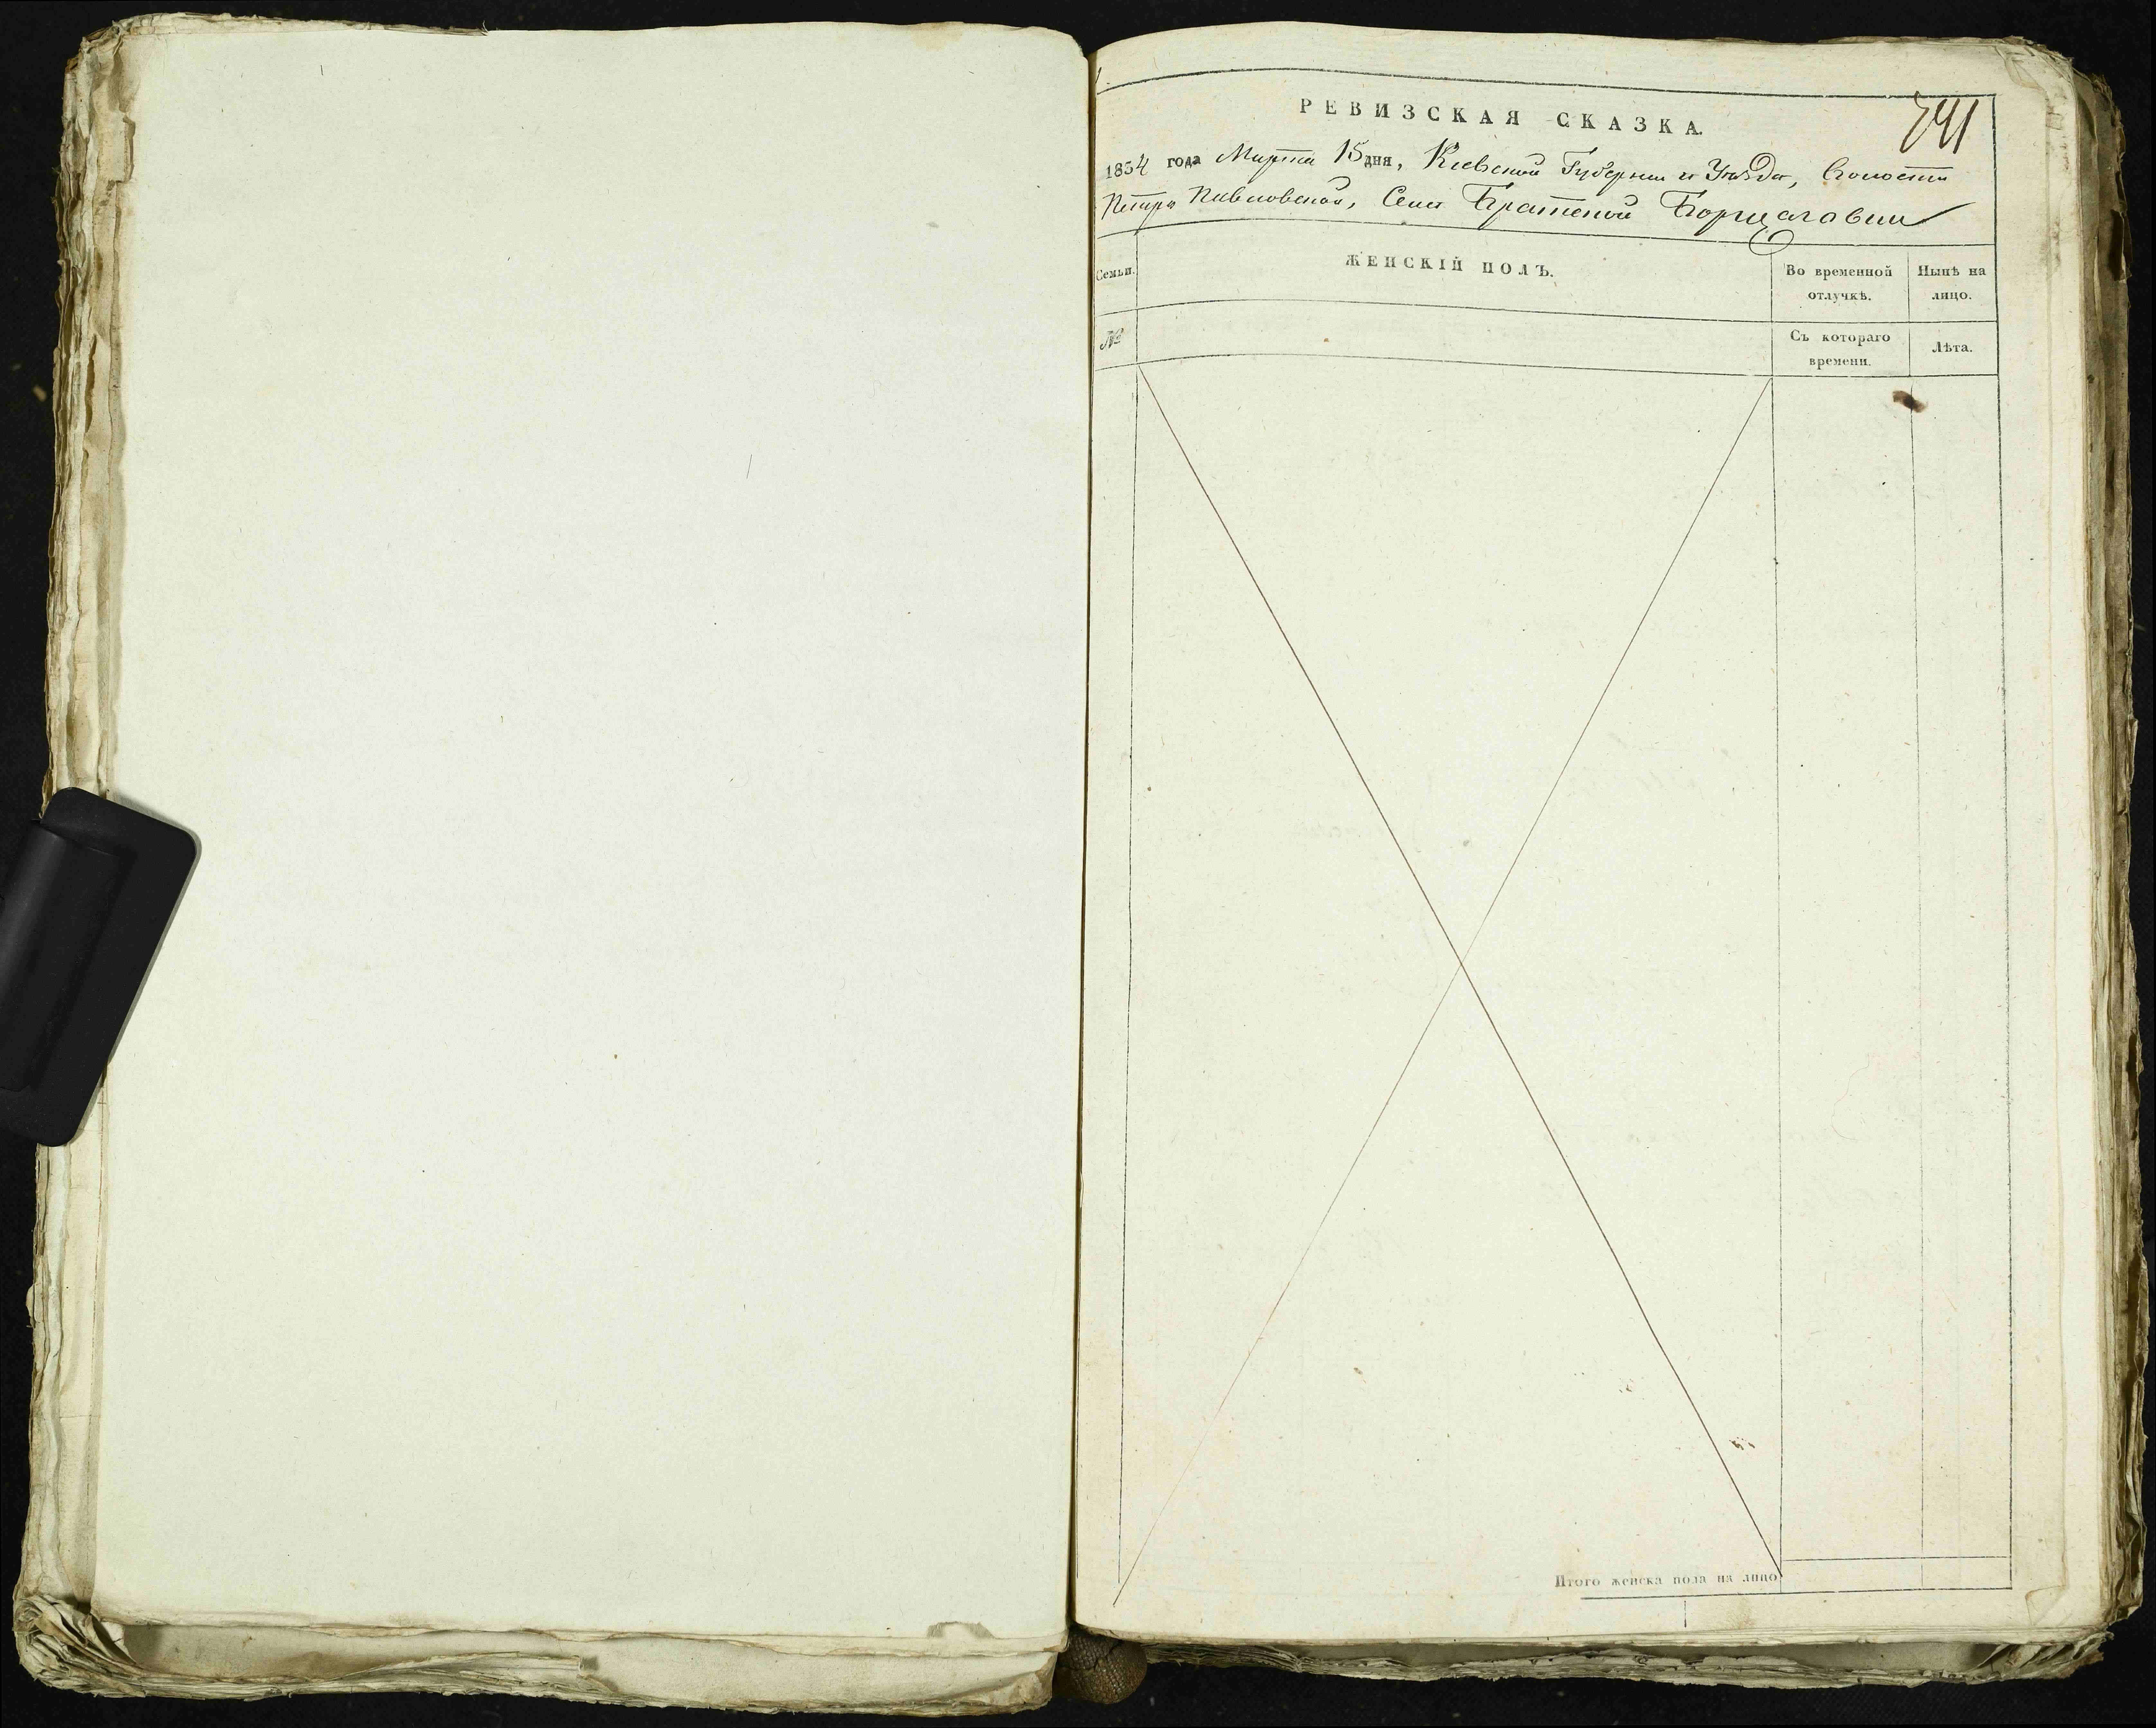 741
РЕВИЗСКАЯ СКАЗКА.
1854 года Марта 15 дня, Кіевской Губерніи и Уѣзда, Волости
Петро Павловской, Села Братской Борщаговки
Семьи.
ЖЕНСКІЙ ПОЛЪ.
Во временной отлучкѣ.
Нынѣ на лицо.
№
Съ котораго времени.
Лѣта.
Итого женска пола на лицо